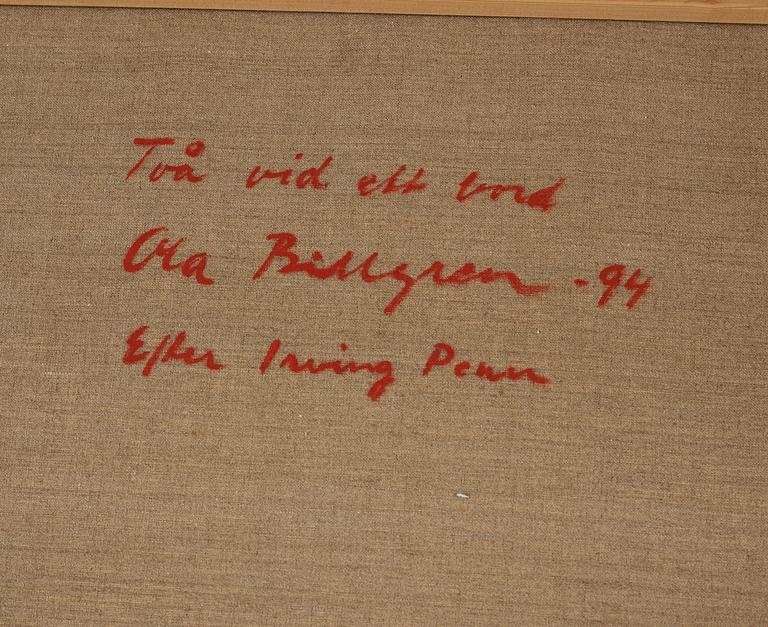 Två vid ett bord
Ola Billgren -94
Efter Irving Penn